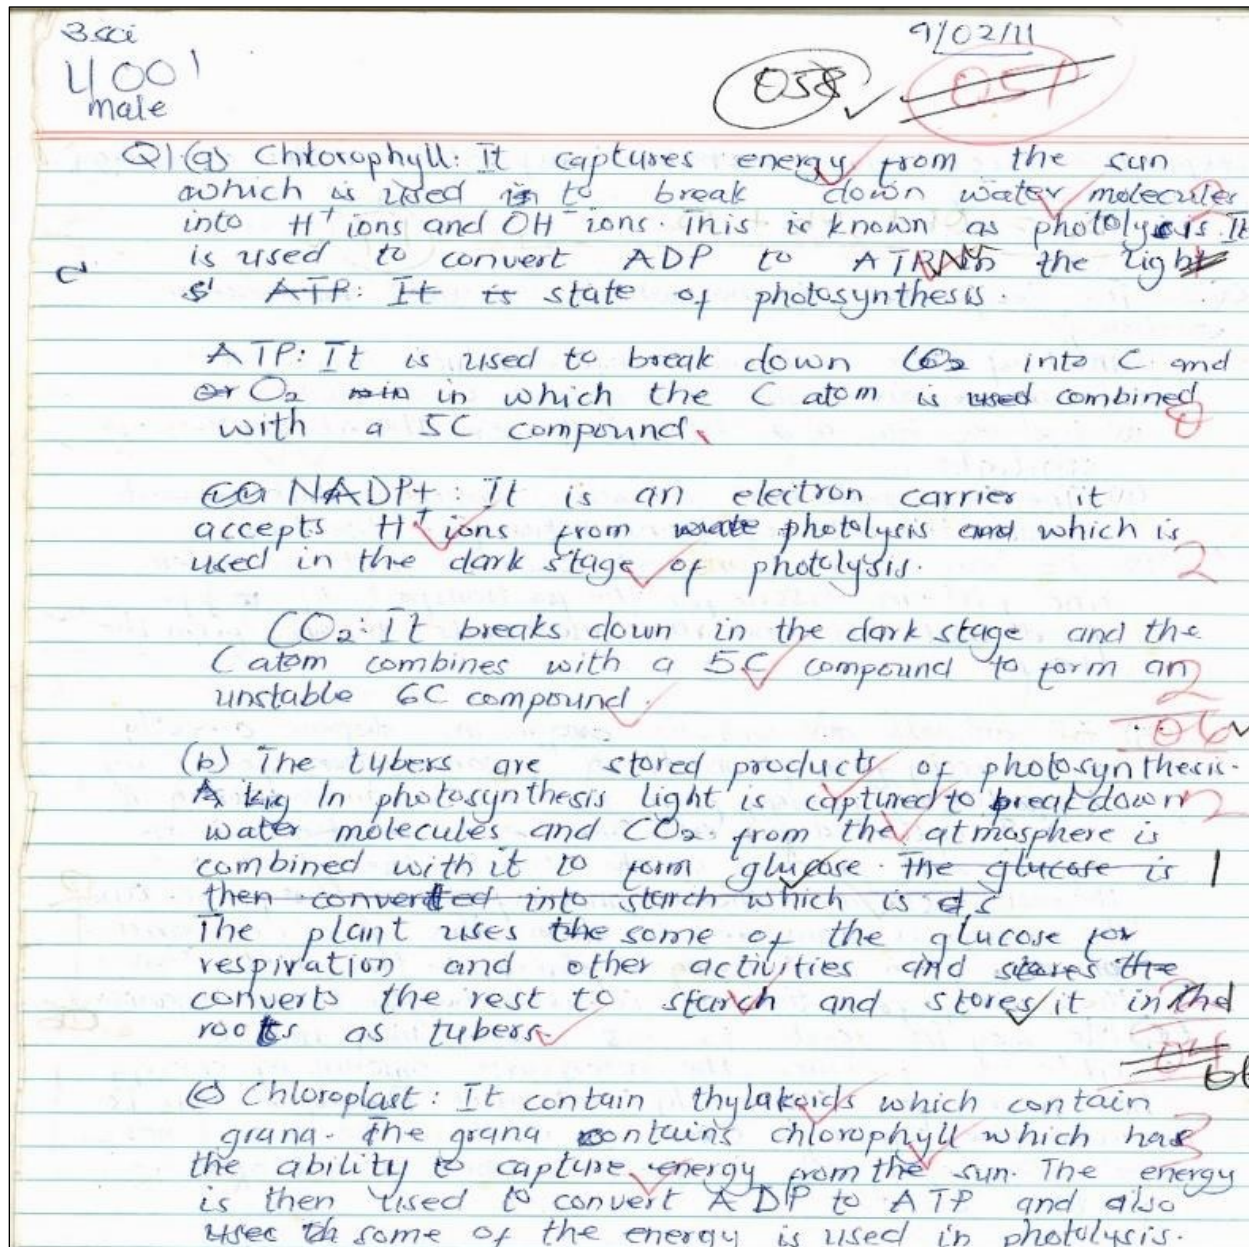 3sci
9/02/11
4001
male
058
051
Q1.(a) Chlorophyll: It captures energy from the sun
which is used to break down water molecules
into H+ ions and OH- ions. This is known as photolysis. It
is used to convert ADP to ATP in the light
ATP: It is state of photosynthesis.
ATP: It is used to break down CO2 into C and
or O2 in which the C atom is used combined
with a 5C compound.
0
NADP+: It is an electron carrier it
accepts H+ ions from photolysis and which is
used in the dark stage of photolysis.
2
CO2: It breaks down in the dark stage and the
C atom combines with a 5C compound to form an
unstable 6C compound.
2
06
(b) The tubers are stored products of photosynthesis.
A In photosynthesis light is captured to break down
2
water molecules and CO2 from the atmosphere is
combined with it to form glucose. The glucose is
1
then converted into starch which is
The plant uses the some of the glucose for
respiration and other activities and stores the
converts the rest to starch and stores it in the
roots as tubers.
(c) Chloroplast: It contain thylakoids which contain
grana. The grana contains chlorophyll which has
3
the ability to capture energy from the sun. The energy
is then used to convert ADP to ATP and also
some of the energy is used in photolysis.